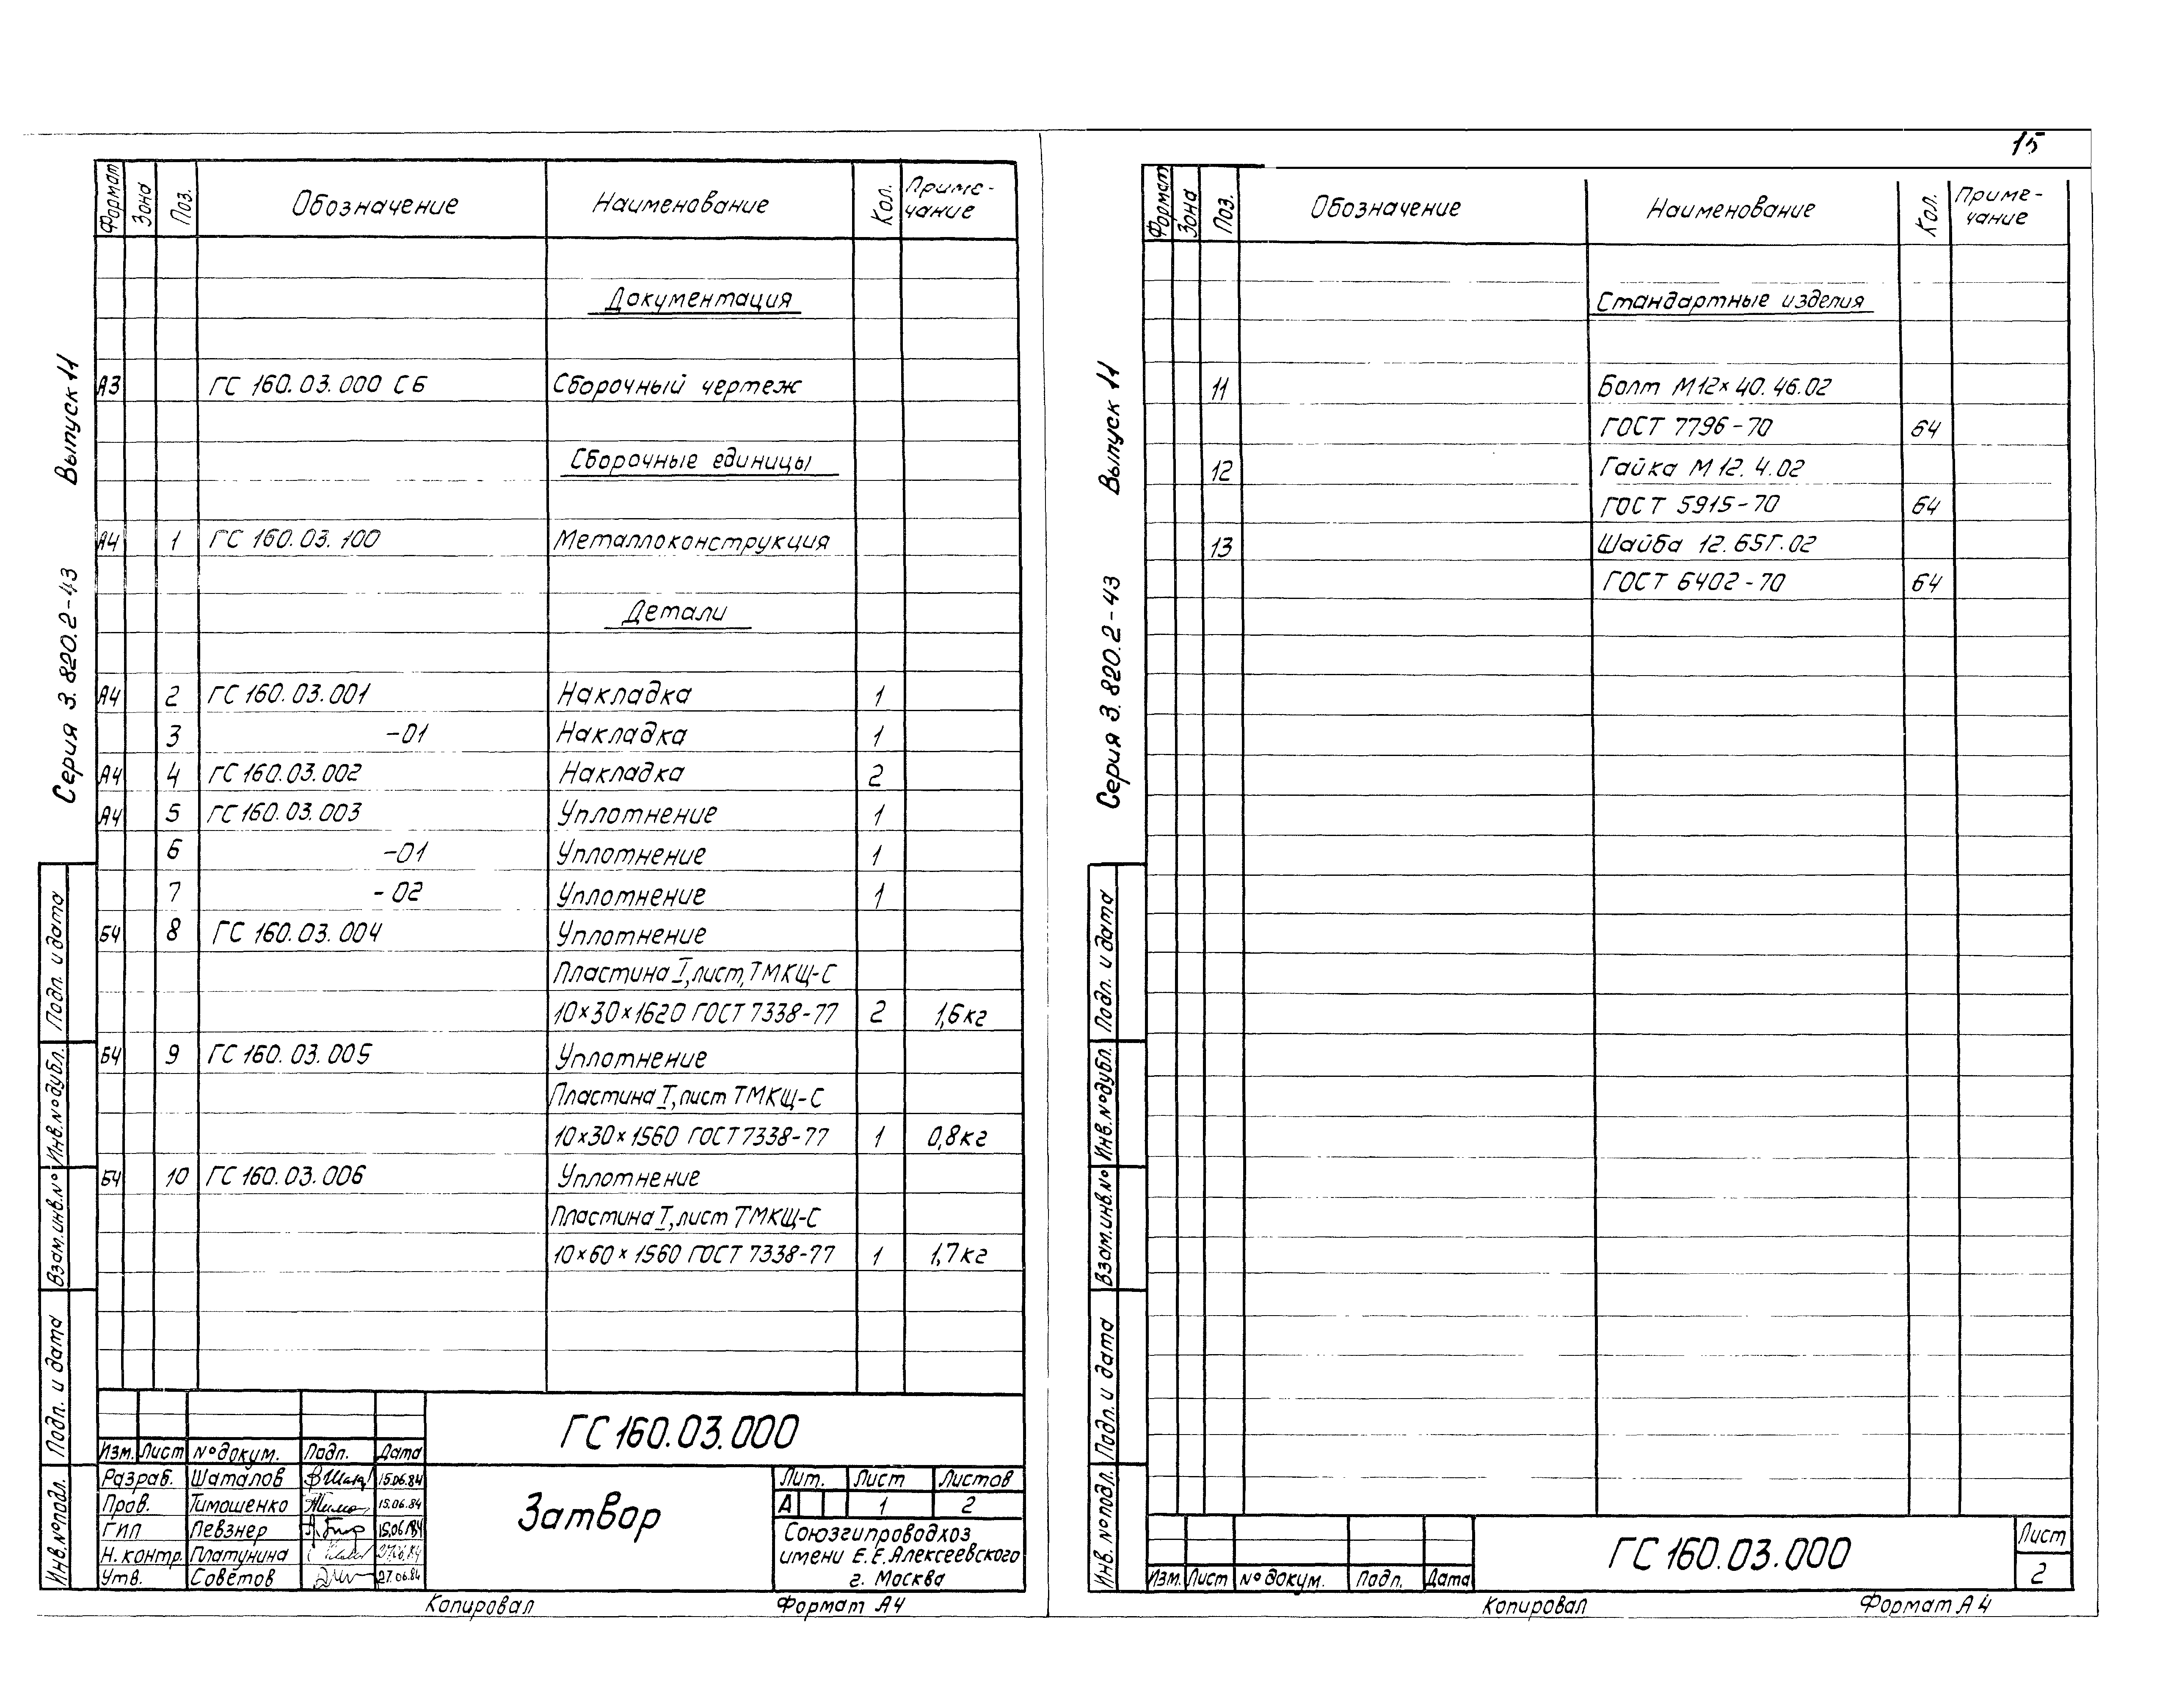 15
Серия 3.820.2-43 Выпуск 11
Формат Зона Поз. Обозначение Наименование Кол. Приме-
чание
Документация
А3 ГС 160.03.000 СБ Сборочный чертеж
Сборочные единицы
А4 1 ГС 160.03.100 Металлоконструкция
Детали
А4 2 ГС 160.03.001 Накладка 1
3 -01 Накладка 1
А4 4 ГС 160.03.002 Накладка 2
А4 5 ГС 160.03.003 Уплотнение 1
6 -01 Уплотнение 1
7 -02 Уплотнение 1
Б4 8 ГС 160.03.004 Уплотнение
Пластина I, лист, ТМКЩ-С
10×30×1620 ГОСТ 7338-77 2 1,6кг
Б4 9 ГС 160.03.005 Уплотнение
Пластина I, лист ТМКЩ-С
10×30×1560 ГОСТ 7338-77 1 0,8кг
Б4 10 ГС 160.03.006 Уплотнение
Пластина I, лист ТМКЩ-С
10×60×1560 ГОСТ 7338-77 1 1,7кг
Подп. и дата
Инв.№дубл.
Взам.инв.№
Подп. и дата
Инв.№подл.
ГС 160.03.000
Изм. Лист №докум. Подп. Дата
Разраб. Шаталов 15.06.84
Пров. Тимошенко 15.06.84
ГИП Певзнер 15.06.84
Н. контр. Платунина 27.06.84
Утв. Советов 27.06.84
Затвор
Лит. Лист Листов
А 1 2
Союзгипроводхоз
имени Е.Е.Алексеевского
г. Москва
Копировал Формат А4
Серия 3.820.2-43 Выпуск 11
Формат Зона Поз. Обозначение Наименование Кол. Приме-
чание
Стандартные изделия
11 Болт М12×40.46.02
ГОСТ 7796-70 64
12 Гайка М12.4.02
ГОСТ 5915-70 64
13 Шайба 12.65Г.02
ГОСТ 6402-70 64
Подп. и дата
Инв.№дубл.
Взам.инв.№
Подп. и дата
Инв.№подл.
Изм. Лист №докум. Подп. Дата
ГС 160.03.000
Лист
2
Копировал Формат А4